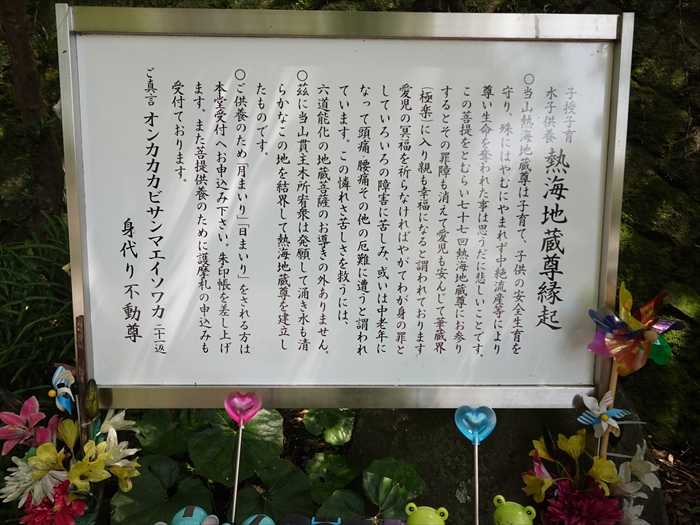 子授子育
水子供養
熱海地蔵尊縁起
○当山熱海地蔵尊は子育て、子供の安全生育を
守り、殊にはやむにやまれず中絶流産等により
尊い生命を奪われた事は思うだに悲しいことです。
この菩提をとむらい七十七回熱海地蔵尊にお参り
するとその罪障も消えて愛児も安んじて華蔵界
(極楽)に入り親も幸福になると謂われております
愛児の冥福を祈らなければやがてわが身の罪と
していろいろの障害に苦しみ、或いは中老年に
なって頭痛、腰痛その他の厄難に遭うと謂われ
ています。この憐れさ苦しさを救うには、
六道能化の地蔵菩薩のお導きの外ありません。
○茲に当山貫主木所宥衆は発願して涌き水も清
らかなこの地を結界して熱海地蔵尊を建立し
たものです。
○ご供養のため「月まいり」「日まいり」をされる方は
本堂受付へお申込み下さい。朱印帳を差し上げ
ます。また菩提供養のために護摩札の申込みも
受付ております。
ご真言 オンカカカビサンマエイソワカ 二十一返
身代り不動尊